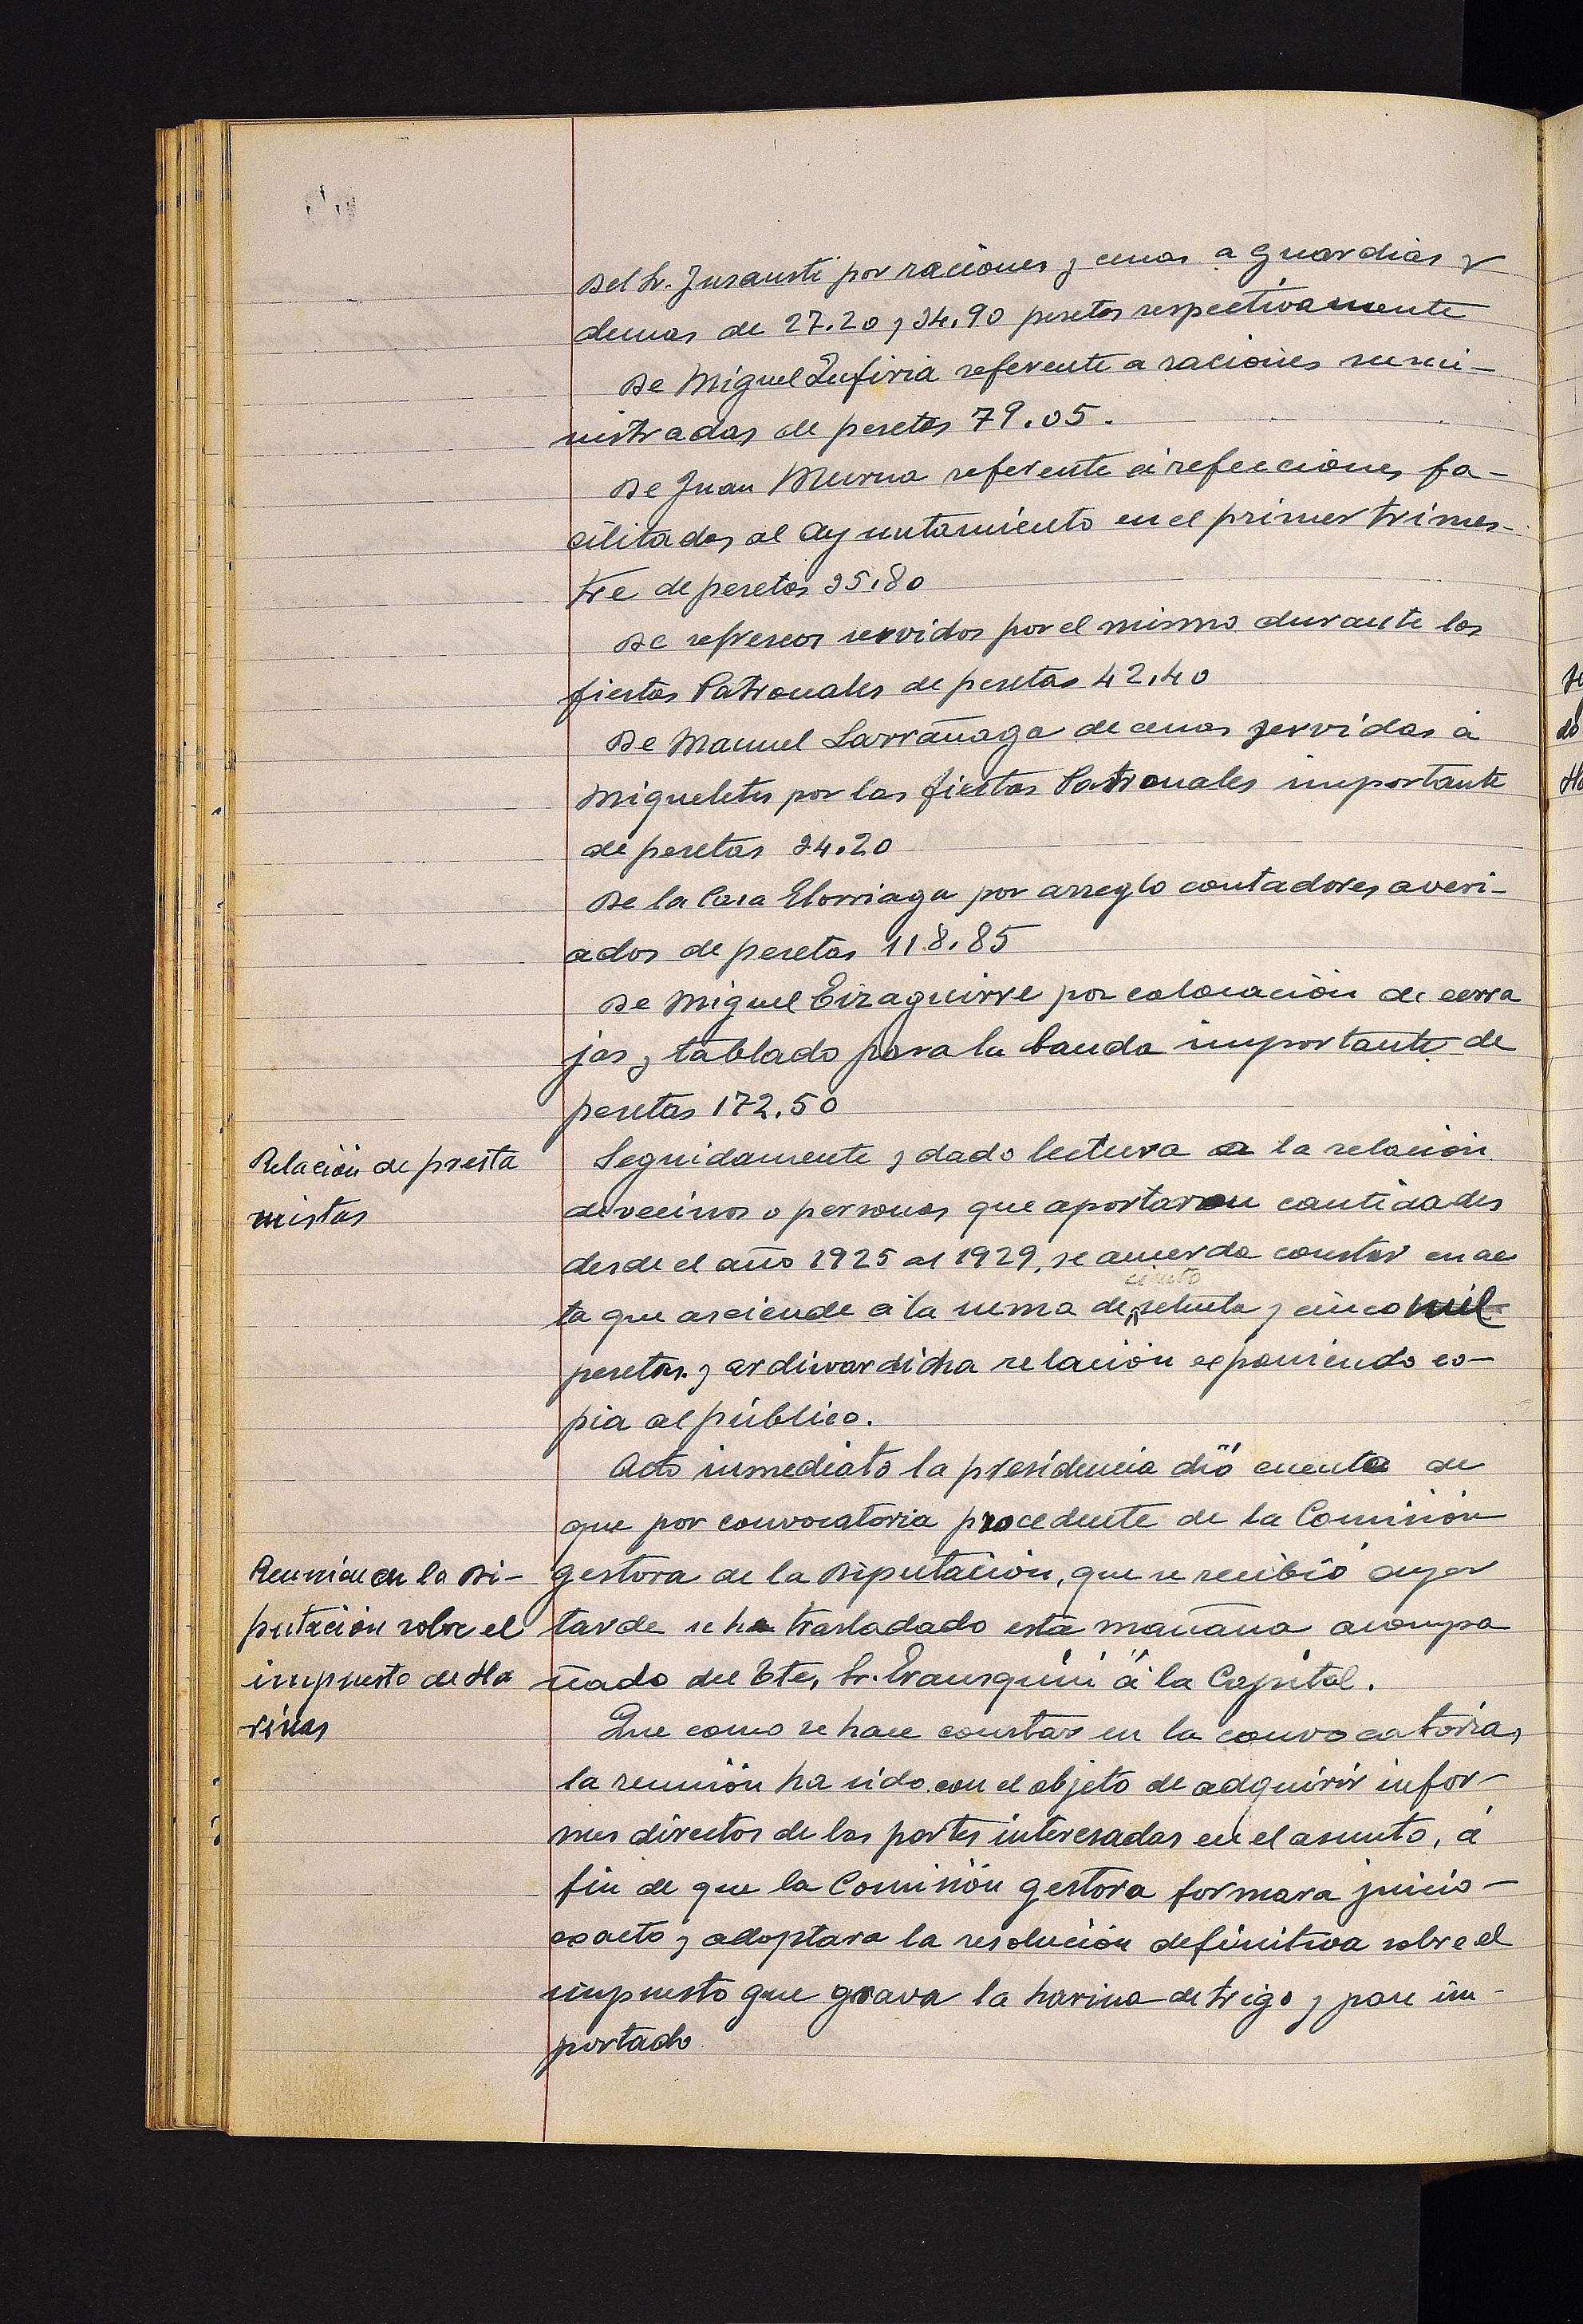 Del Sr. Insausti por raciones y cenas a guardias y
demas de 27.20 y 34.90 pesetas respectivamente
De Miguel Zufiria referente a raciones sumi-
nistradas de pesetas 79.05.
De Juan Murua referente á refecciones fa-
cilitadas al Ayuntamiento en el primer trimes-
tre de pesetas 35.80
De refrescos servidos por el mismo durante las
fiestas Patronales de pesetas 42.40
De Manuel Larrañaga de cenas servidas á
Migueletes por las fiestas Patronales importante
de pesetas 24.20
De la Casa Elorriaga por arreglo contadores averi-
ados de pesetas 118.85
De Miguel Eizaguirre por colocación de cerra
jas y tablado para la banda importante de
pesetas 172.50
Relación de presta
mistas
Seguidamente y dado lectura a la relación
de vecinos o personas que aportaron cantidades
desde el año 1925 al 1929, se acuerda constar en ac
ta que asciende á la suma de ciento setenta y cinco mil
pesetas y archivar dicha relación exponiendo co-
pia al público.
Acto inmediato la presidencia dió cuenta de
que por convocatoria procedente de la Comisión
Reunión en la Di-
putación sobre el
impuesto de Ha
rinas
gestora de la Diputación, que se recibió ayer
tarde se ha trasladado esta mañana acompa
ñado del Tte. Sr. Erausquin á la Capital.
Que como se hace constar en la convocatoria,
la reunión ha sido con el objeto de adquirir infor-
mes directos de las partes interesadas en el asunto, á
fin de que la Comisión gestora formara juicio-
exacto y adoptara la resolución definitiva sobre el
impuesto que grava la harina de trigo y pan im-
portado